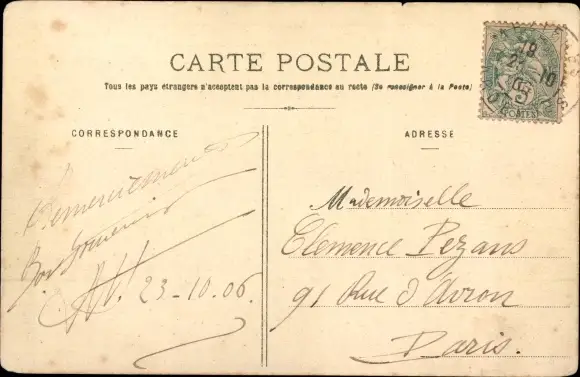 CARTE POSTALE
Tous les pays étrangers n'acceptent pas la correspondance au recto (Se renseigner à la Poste)
CORRESPONDANCE
Remerciements
Bon Souvenir
23-10.06.
ADRESSE
Mademoiselle
Clemence Pezans
91 Rue d'Avron
Paris.
POSTES